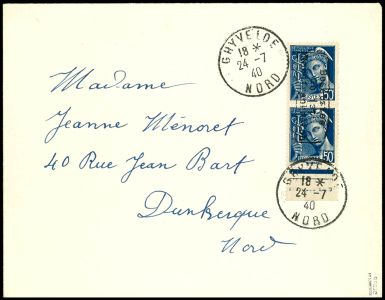 GHYVELDE
18 *
24 -7
40
NORD
50
50
Madame
Jeanne Ménoret
40 Rue Jean Bart
Dunkerque
Nord
GHYVELDE
18 *
24 -7
40
NORD